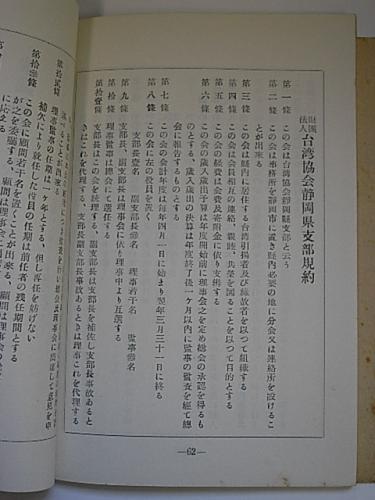 財団
法人 台湾協会静岡県支部規約
第一條 この会は台湾協会靜岡縣支部と云う
第二條 この会は事務所を靜岡市に置き縣內必要の地に分会又は連絡所を設けるこ
とが出来る
第三條 この会は縣內に居住する台湾引揚者及び縁故者を以つて組織する
第四條 この会は会員相互の連絡、親睦、共榮を図ることを以つて目的とする
第五條 この会の経費は会費及寄附金に依り支辨する
第六條 この会の歳入歳出予算は年度開始前に理事会之を定め総会の承認を得るも
のとする、歳入歳出の決算は年度終了後一ケ月以内に監事の監査を経て総
会に報告するものとする
第七條 この会の会計年度は毎年四月一日に始まり翌年三月三十一日に終る
第八條 この会に左の役員を置く
支部長壹名 副支部長參名 理事若干名 監事參名
第九條 支部長、副支部長は理事会に依り理事中より互選する
第拾條 理事監事は総会にて選任する
第拾壹條 支部長はこの会を統理する、副支部長は支部長を補佐し支部長事故あると
きはこれを代理する、支部長副支部長事故あるときは理事これを代理する
第拾貳條 理事監事の任期は一ケ年とする、但し再任を妨げない
補欠により就任した役員の任期は前任者の残任期間とする
第拾參條 この会に顧問若干名を置くことが出来る、顧問は
—62—